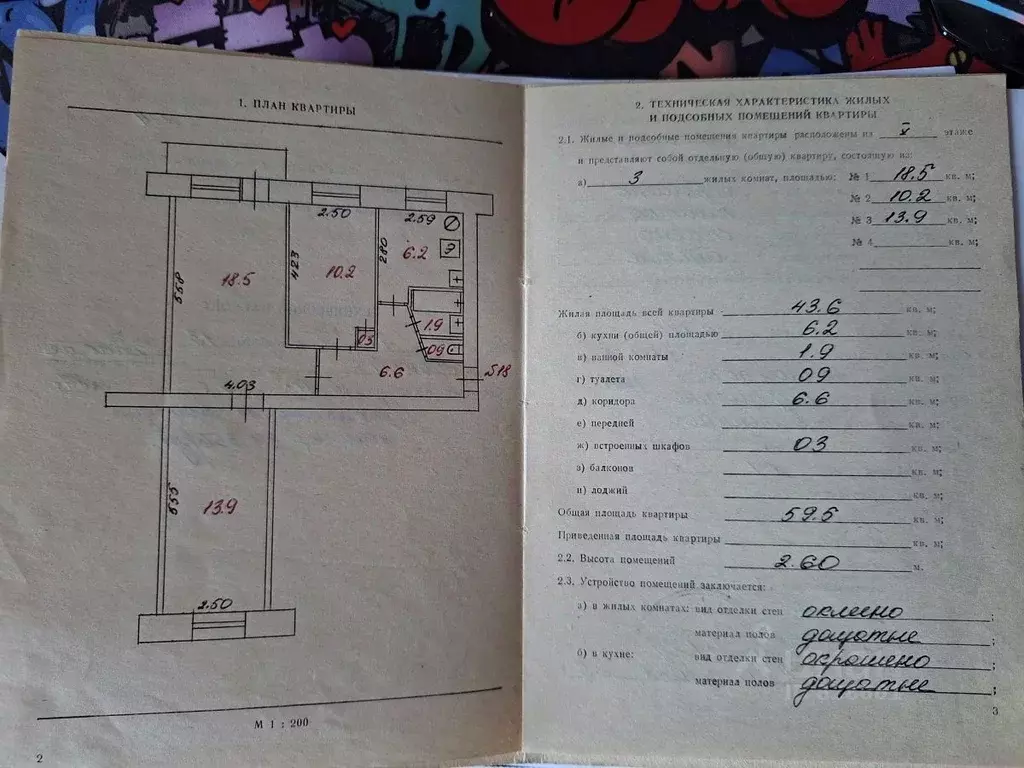 1. ПЛАН КВАРТИРЫ
2.50
2.59
558
18.5
423
10.2
280
6.2
Э
1.9
03
09
6.6
4.03
555
13.9
2.50
М 1 : 200
2
2. ТЕХНИЧЕСКАЯ ХАРАКТЕРИСТИКА ЖИЛЫХ
И ПОДСОБНЫХ ПОМЕЩЕНИЙ КВАРТИРЫ
2.1. Жилые и подсобные помещения квартиры расположены на V этаже
и представляют собой отдельную (общую) квартиру, состоящую из:
а) 3 жилых комнат, площадью: № 1 18.5 кв. м;
№ 2 10.2 кв. м;
№ 3 13.9 кв. м;
№ 4 кв. м;
Жилая площадь всей квартиры 43.6 кв. м;
б) кухни (общей) площадью 6.2 кв. м;
в) ванной комнаты 1.9 кв. м;
г) туалета 09 кв. м;
д) коридора 6.6 кв. м;
е) передней кв. м;
ж) встроенных шкафов 03 кв. м;
з) балконов кв. м;
и) лоджий кв. м;
Общая площадь квартиры 59.5 кв. м;
Приведенная площадь квартиры кв. м;
2.2. Высота помещений 2.60 м.
2.3. Устройство помещений заключается:
а) в жилых комнатах: вид отделки стен оклеено ;
материал полов дощатые ;
б) в кухне: вид отделки стен окрашено ;
материал полов дощатые ;
3